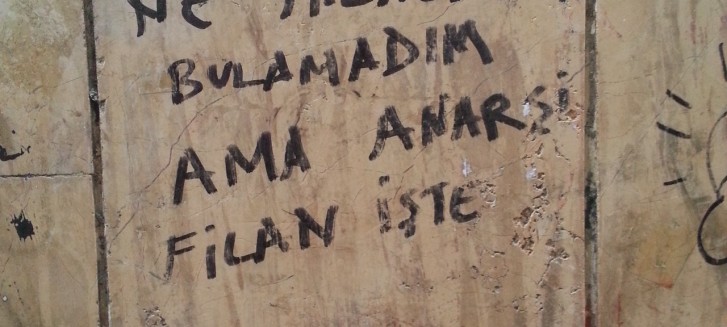 NE
BULAMADIM
AMA ANARŞİ
FİLAN İŞTE